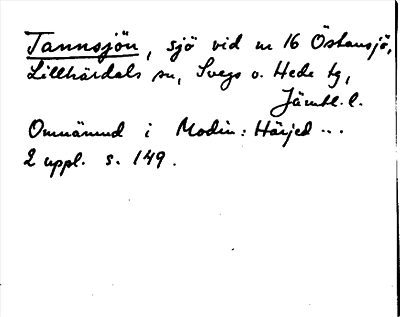 Tannsjön, sjö vid nr 16 Östansjö,
Lillhärdals sn, Svegs o. Hede tg,
Jämtl. l.
Omnämnd i Modin: Härjed...
2 uppl. s. 149.